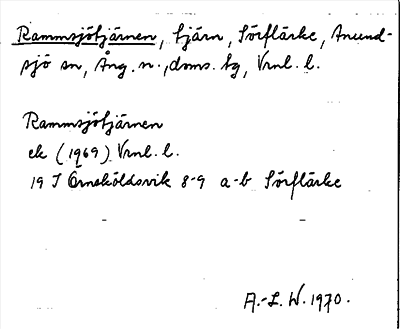 Rammsjötjärnen, tjärn, Sörflärke, Anund-
sjö sn, Ång. n., doms. tg, Vrnl. l.
Rammsjötjärnen
ek (1969) Vrnl. l.
19 I Örnsköldsvik 8-9 a-b Sörflärke
A.-L. W. 1970.